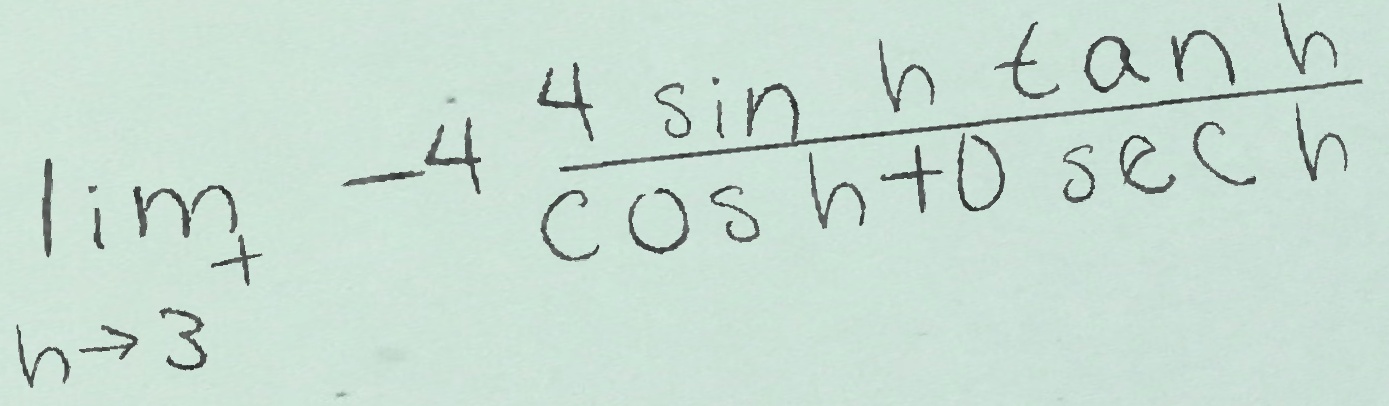 lim -4 4 sin h tan h
h→3+ cos h+0 sec h